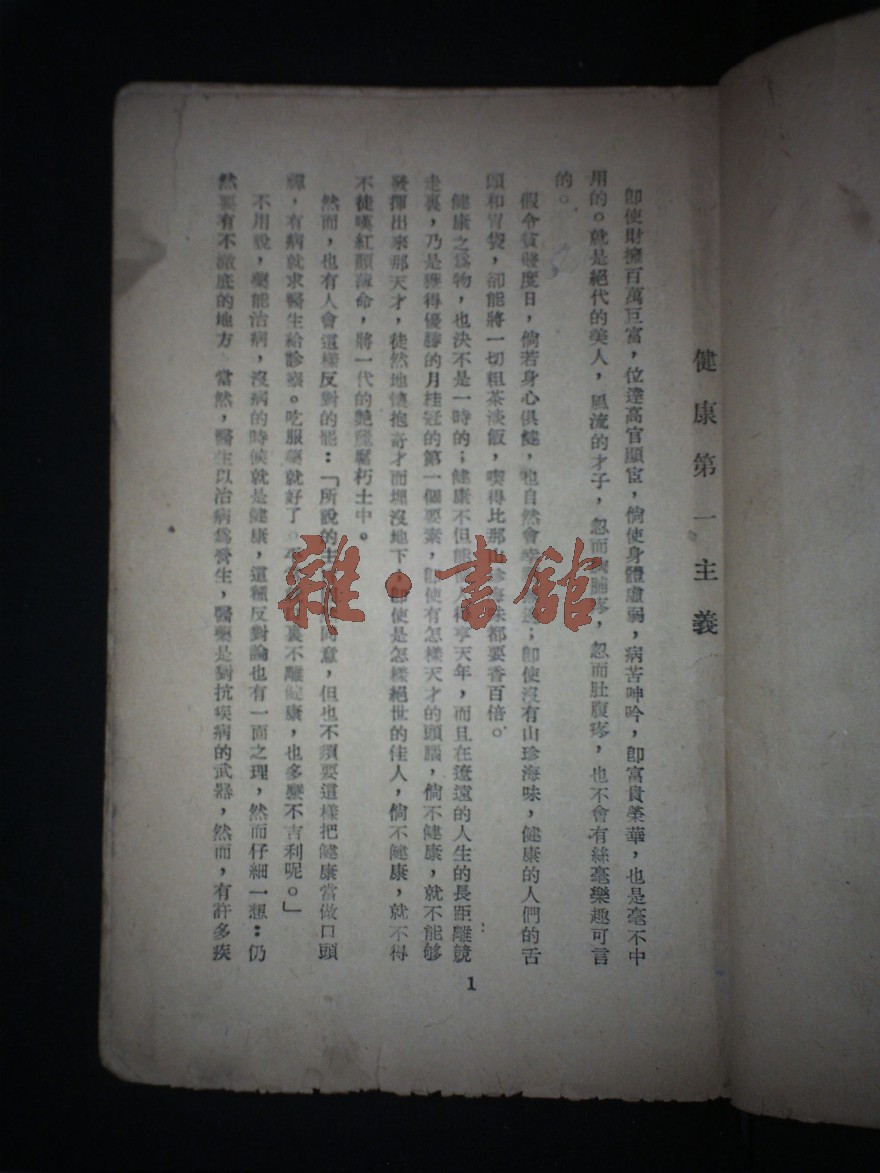 健康第一主義
即使財擁百萬巨富，位達高官顯宦，倘使身體虛弱，病苦呻吟，即富貴榮華，也是毫不中
用的。就是絕代的美人，風流的才子，忽而肺疼，忽而肚腹疼，也不會有絲毫樂趣可言
的。
假令貧賤度日，倘若身心俱健，也自然會；即使沒有山珍海味，健康的人們的舌
頭和胃袋，卻能將一切粗茶淡飯，喫得比那山珍海味都要香百倍。
健康之為物，也決不是一時的；健康不但能使人得享天年，而且在遼遠的人生的長距離競
走裏，乃是獲得優勝的月桂冠的第一個要素，即使有怎樣天才的頭腦，倘不健康，就不能够
發揮出來那天才，徒然地懷抱奇才而埋沒地下，即使是怎樣絕世的佳人，倘不健康，就不得
不徒嘆紅顏薄命，將一代的艷朽土中。
然而，也有人會這樣反對的罷：「所說的主同意，但也不須要這樣把健康當做口頭
禪，有病就求醫生給診察。吃服藥就好了。裏不離健康，也多麼不吉利呢。」
不用說，藥能治病，沒病的時候就是健康，這種反對論也有一面之理，然而仔細一想：仍
然要有不澈底的地方 當然，醫生以治病為醫生，醫藥是對抗疾病的武器，然而，有許多疾
1
雜·書館